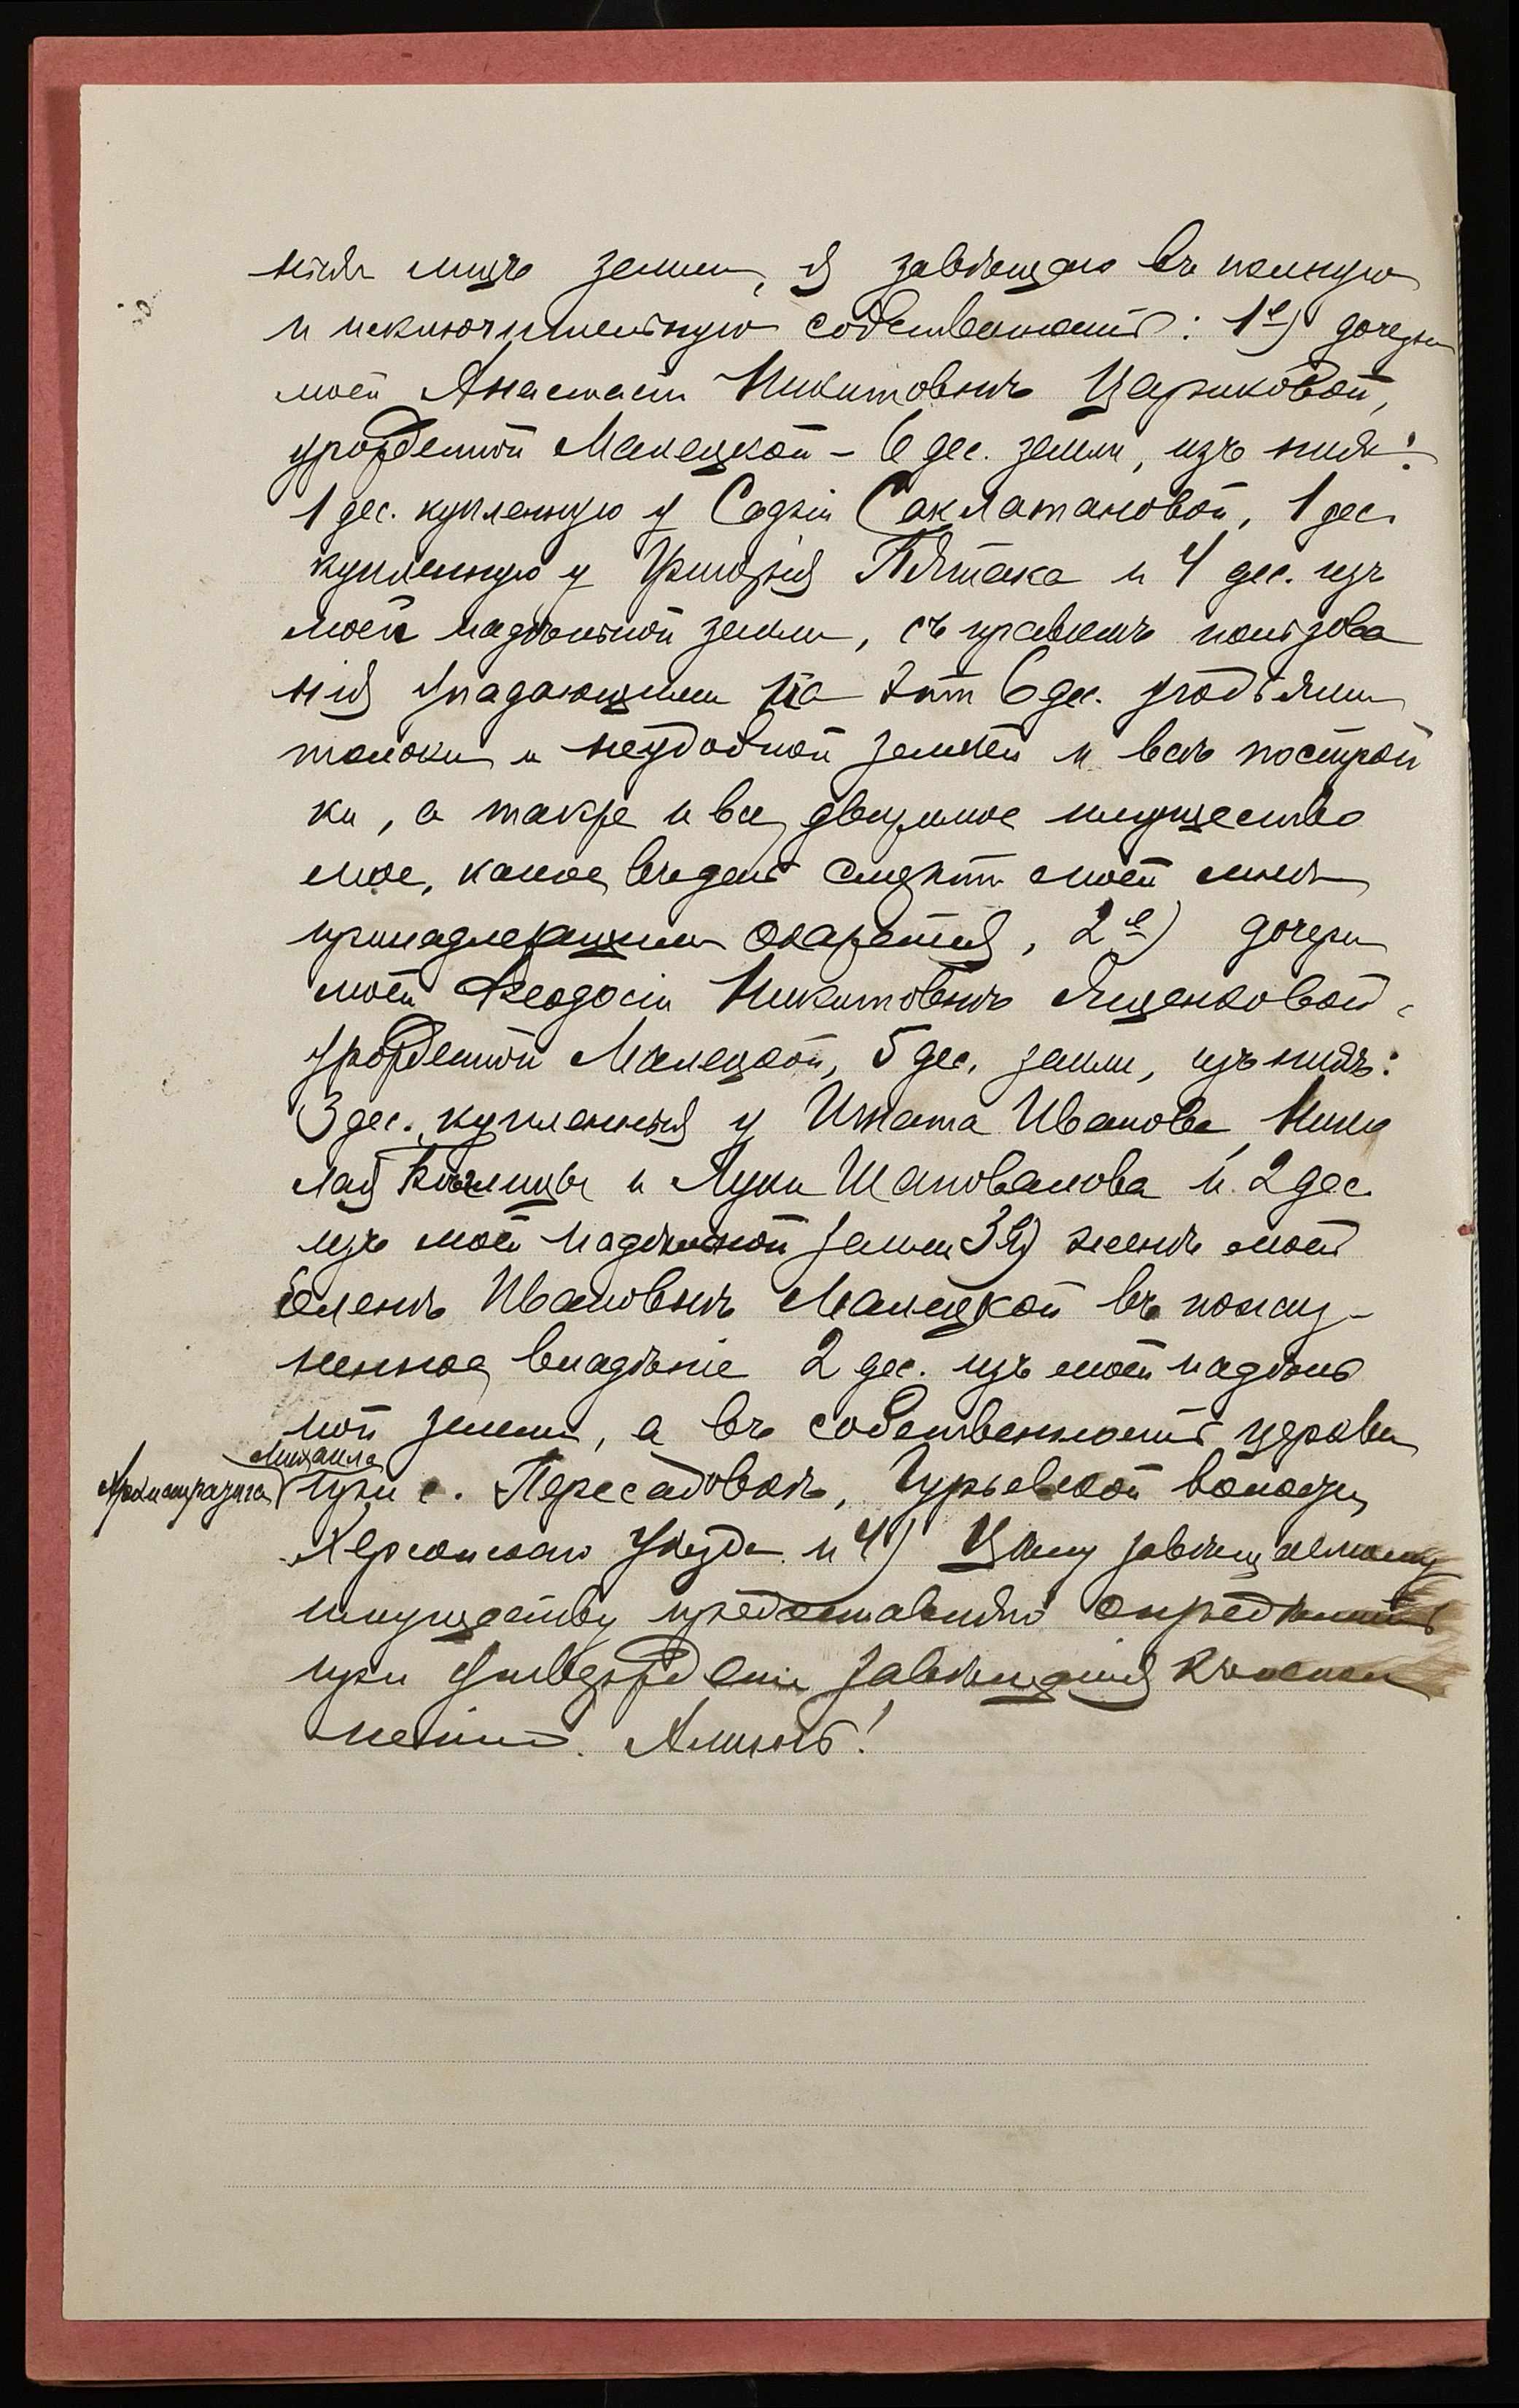 ныхъ лицъ земли, я завѣщаю въ полную
и исключительную собственность: 1е) дочери
моей Анастасіи Никитовнѣ Цариковой,
урожденной Малецкой – 6 дес. земли, изъ нихъ:
1 дес. купленную у Софіи Саклатановой, 1 дес.
купленную у Григорія Пятака и 4 дес. изъ
моей надѣльной земли, съ правомъ пользова
нія упадающими на эти 6 дес. угодьями
толоки и неудобной землей и всѣ построй
ки, а также и все движимое имущество
мое, какое въ день смерти моей мнѣ
принадлежащимъ окажется, 2е) дочери
моей Феодосіи Никитовнѣ Ященковой,
урожденной Малецкой, 5 дес. земли, изъ нихъ:
3 дес. купленныя у Игната Иванова, Нико
лая и Луки Шаповалова и 2 дес.
изъ моей надѣльной земли 3е) женѣ моей
Еленѣ Ивановнѣ Малецкой въ пожиз-
ненное владѣніе 2 дес. изъ моей надѣль
ной земли, а въ собственность церкви
Архистратига Михаила при с. Пересадовкѣ, Гурьевской волости,
Херсонскаго уѣзда и 4) Цѣну завѣщаемому
имуществу предоставляю опредѣлить
при утвержденіи завѣщанія къ испол
ненію. Аминь!